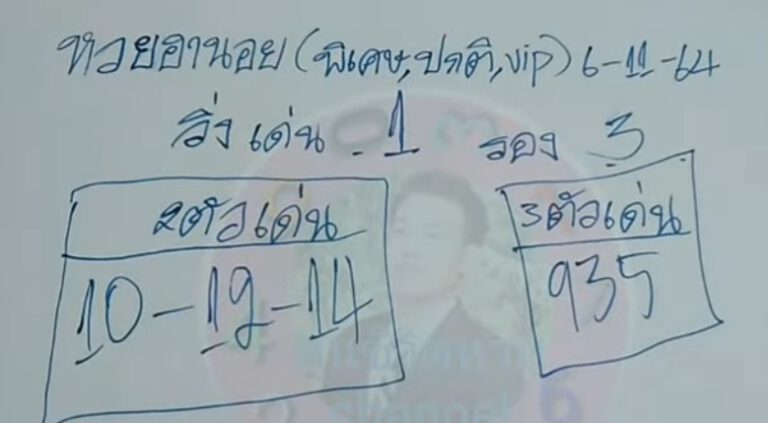 หวยฮานอย (พิเศษ,ปกติ,vip) 6-11-64
วิ่งเด่น 1 รอง 3
2ตัวเด่น
10-12-14
3ตัวเด่น
935